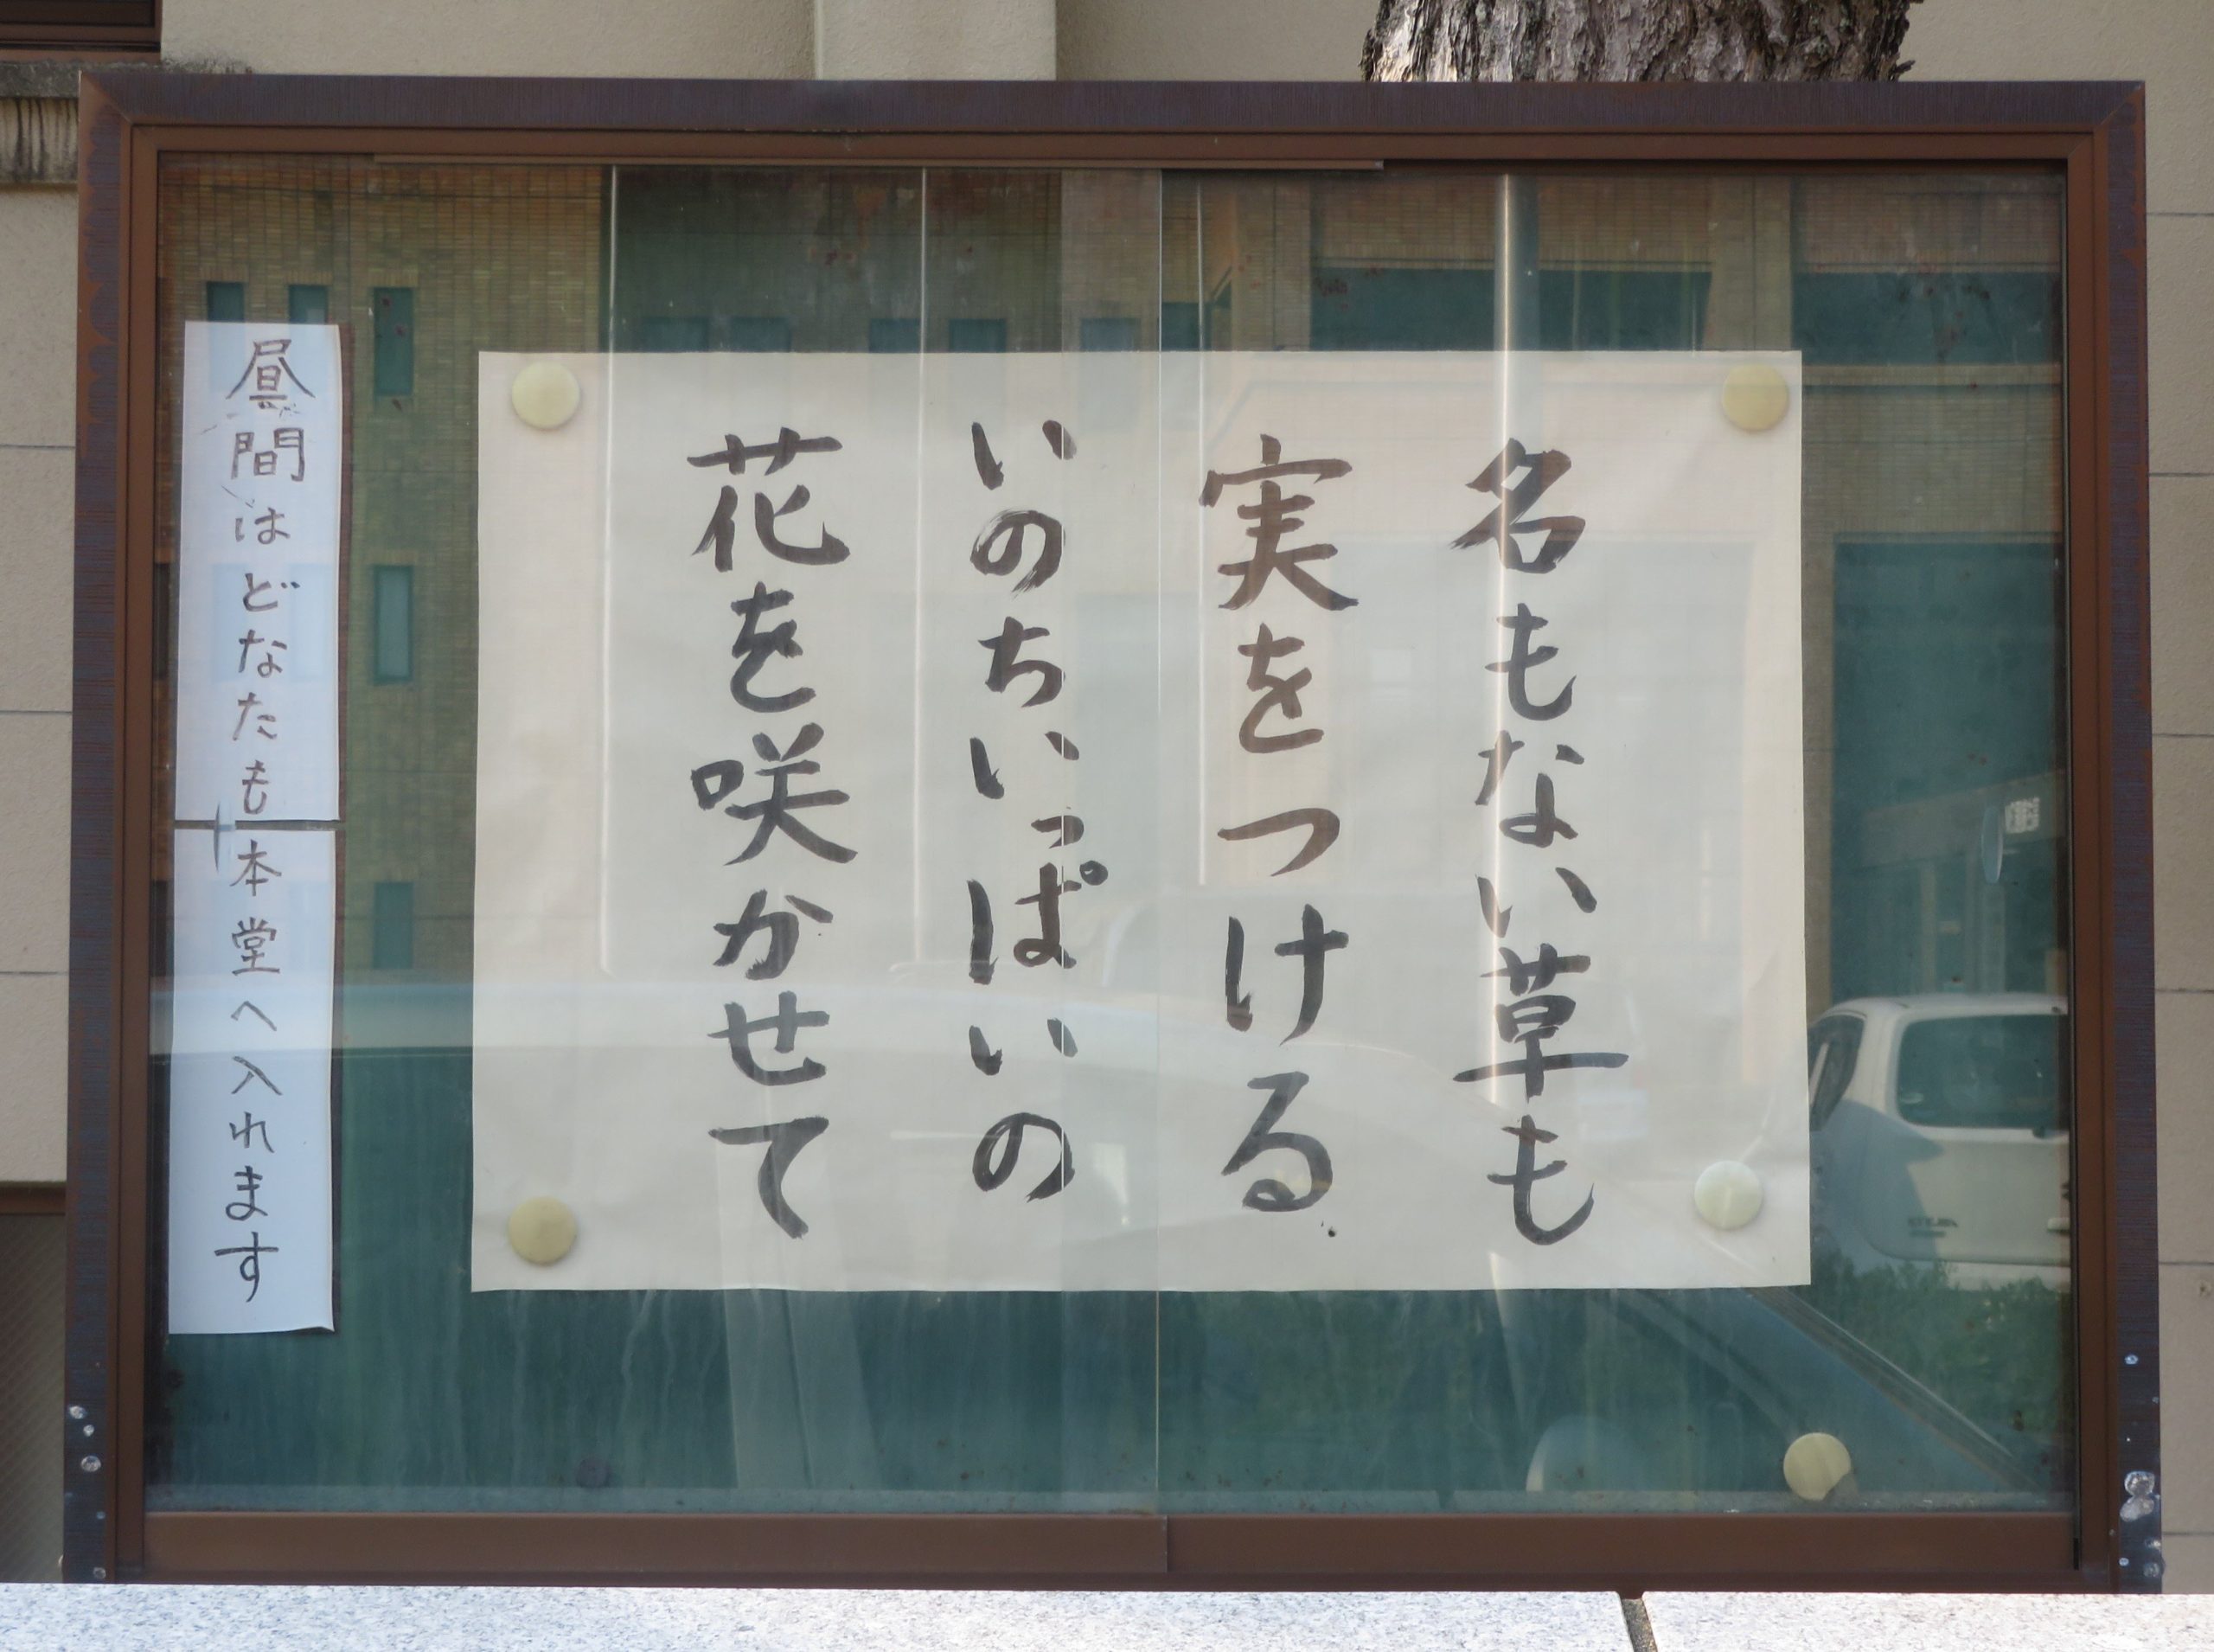 名もない草も
実をつける
いのちいっぱいの
花を咲かせて
昼間はどなたも本堂へ入れます